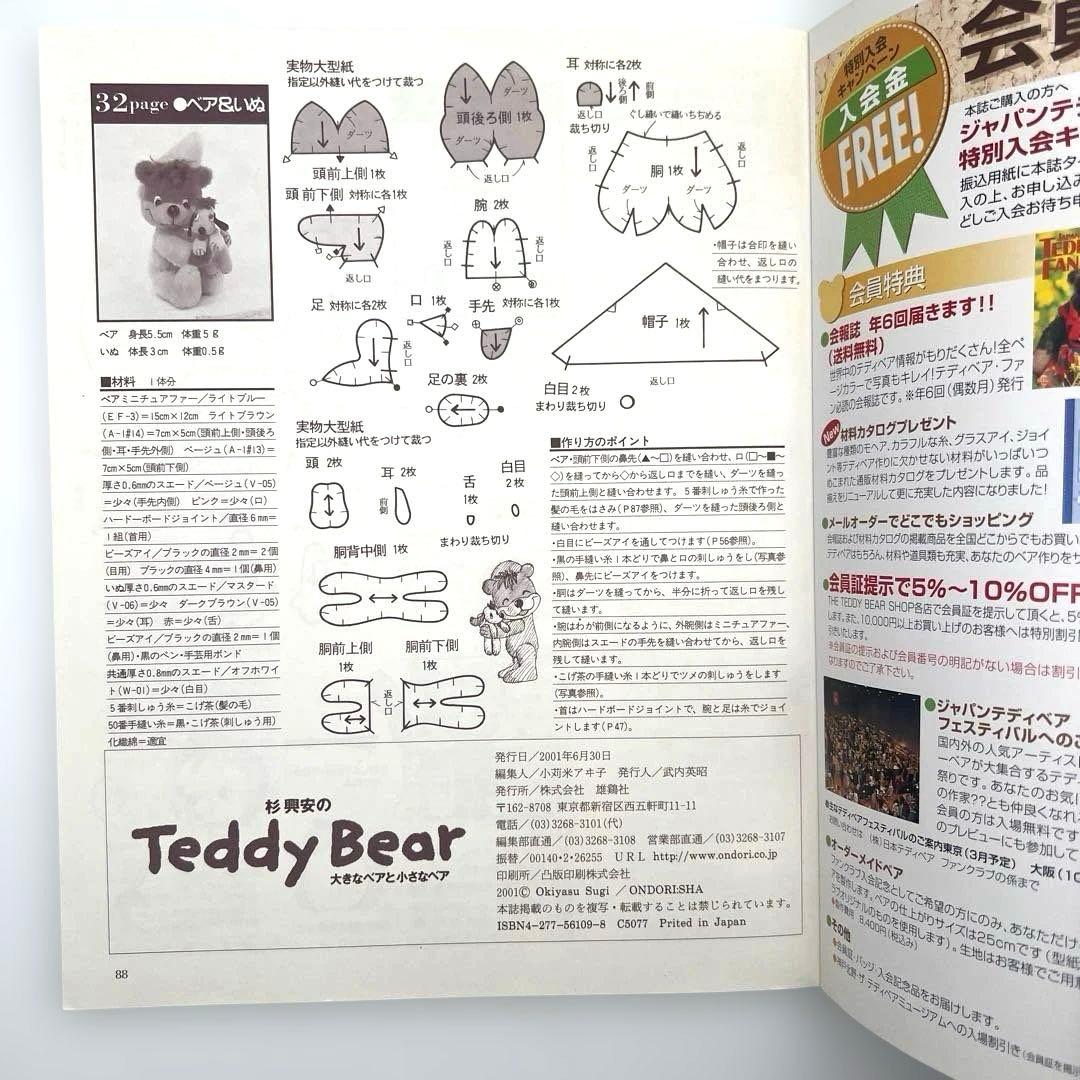 32page ●ベア&いぬ
ベア 身長5.5cm 体重5g
いぬ 体長3cm 体重0.5g
■材料 1体分
ベアミニチュアファー/ライトブルー
(EF-3)=15cm×12cm ライトブラウン
(A-1#14)=7cm×5cm(頭前上側・頭後ろ
側・耳・手先外側) ベージュ(A-1#13)=
7cm×5cm(頭前下側)
厚さ0.6mmのスエード/ベージュ(V-05)
=少々(手先内側) ピンク=少々(口)
ハードーボードジョイント/直径6mm=
1組(首用)
ビーズアイ/ブラックの直径2mm=2個
(目用) ブラックの直径4mm=1個(鼻用)
いぬ厚さ0.6mmのスエード/マスタード
(V-06)=少々 ダークブラウン(V-05)
=少々(耳) 赤=少々(舌)
ビーズアイ/ブラックの直径2mm=1個
(鼻用)・黒のペン・手芸用ボンド
共通厚さ0.8mmのスエード/オフホワイ
ト(W-01)=少々(白目)
5番刺しゅう糸=こげ茶(髪の毛)
50番手縫い糸=黒・こげ茶(刺しゅう用)
化繊綿=適宜
実物大型紙
指定以外縫い代をつけて裁つ
ダーツ
頭前上側1枚
ダーツ
頭後ろ側 1枚
返し口
耳 対称に各2枚
後ろ側
前側
返し口
裁ち切り
ぐし縫いで縫いちぢめる
返し口
返し口
胴1枚
ダーツ
ダーツ
頭前下側 対称に各1枚
返し口
腕 2枚
返し口
返し口
・帽子は合印を縫い
合わせ、返し口の
縫い代をまつります。
足 対称に各2枚
返し口
口 1枚
手先 対称に各1枚
帽子 1枚
返し口
足の裏 2枚
白目2枚
まわり裁ち切り
実物大型紙
指定以外縫い代をつけて裁つ
頭 2枚
耳 2枚
前側
舌
1枚
白目
2枚
まわり裁ち切り
胴背中側 1枚
胴前上側
1枚
胴前下側
1枚
返し口
■作り方のポイント
ベア・頭前下側の鼻先(▲〜□)を縫い合わせ、口(□〜■〜
◇)を縫ってから◇から返し口までを縫い、ダーツを縫っ
た頭前上側と縫い合わせます。5番刺しゅう糸で作った
髪の毛をはさみ(P87参照)、ダーツを縫った頭後ろ側と
縫い合わせます。
・白目にビーズアイを通してつけます(P56参照)。
・黒の手縫い糸1本どりで鼻と口の刺しゅうをし(写真参
照)、鼻先にビーズアイをつけます。
・胴はダーツを縫ってから、半分に折って返し口を残し
て縫います。
・腕はわが前側になるように、外腕側はミニチュアファー、
内腕側はスエードの手先を縫い合わせてから、返し口を
残して縫います。
・こげ茶の手縫い糸1本どりでツメの刺しゅうをします
(写真参照)。
・首はハードーボードジョイントで、腕と足は糸でジョイ
ントします(P47)。
杉 興安の
Teddy Bear
大きなベアと小さなベア
発行日/2001年6月30日
編集人/小苅米アヰ子 発行人/武内英昭
発行所/株式会社 雄鶏社
〒162-8708 東京都新宿区西五軒町11-11
電話/(03)3268-3101(代)
編集部直通/(03)3268-3108 営業部直通/(03)3268-3107
振替/00140・2・26255 URL http://www.ondori.co.jp
印刷所/凸版印刷株式会社
2001© Okiyasu Sugi /ONDORI:SHA
本誌掲載のものを複写・転載することは禁じられています。
ISBN4-277-56109-8 C5077 Prited in Japan
88
会員
特別入会
キャンペーン
入会金
FREE!
本誌ご購入の方へ
ジャパンテデ
特別入会キ
振込用紙に本誌タ
入の上、お申し込み
どしご入会お待ち申
会員特典
●会報誌 年6回届きます!!
(送料無料)
世界中のテディベア情報がもりだくさん!全ペ
ージカラーで写真もキレイ!テディベア・ファ
ン必読の会報誌です。※年6回(偶数月)発行
New 材料カタログプレゼント
豊富な種類のモヘア、カラフルな糸、グラスアイ、ジョイ
ント等テディベア作りに欠かせない材料がいっぱいつ
めこまれた通販材料カタログをプレゼントします。品
揃えをリニューアルして更に充実した内容になりました!
●メールオーダーでどこでもショッピング
会報誌および材料カタログの掲載商品を全国どこからでもお買い
テディベアはもちろん、材料や道具類も充実、あなたのベア作りをサ
●会員証提示で5%〜10%OFF
THE TEDDY BEAR SHOP各店で会員証を提示して頂くと、5
します。また、10,000円以上お買い上げのお客様へは特別割引
引きいたします。
※会員証の提示および会員番号の明記がない場合は割引
なりますのでご了承下さい。
●ジャパンテディベア
フェスティバルへのご
国内外の人気アーティスト
ーベアが大集合するテデ
祭りです。あなたのお気に
の作家??とも仲良くなれ
会員の方は入場無料です
のプレビューにも参加して
●主なテディベアフェスティバルのご案内東京(3月予定) 大阪(10
お問い合わせは (株)日本テディベア ファンクラブの係まで
●オーダーメイドベア
ファンクラブ入会記念としてご希望の方にのみ、あなただけ
アを製作します。ベアの仕上がりサイズは25cmです(型紙
8,400円(税込み)
●その他
会員証・バッジ・入会記念品をお届けします。